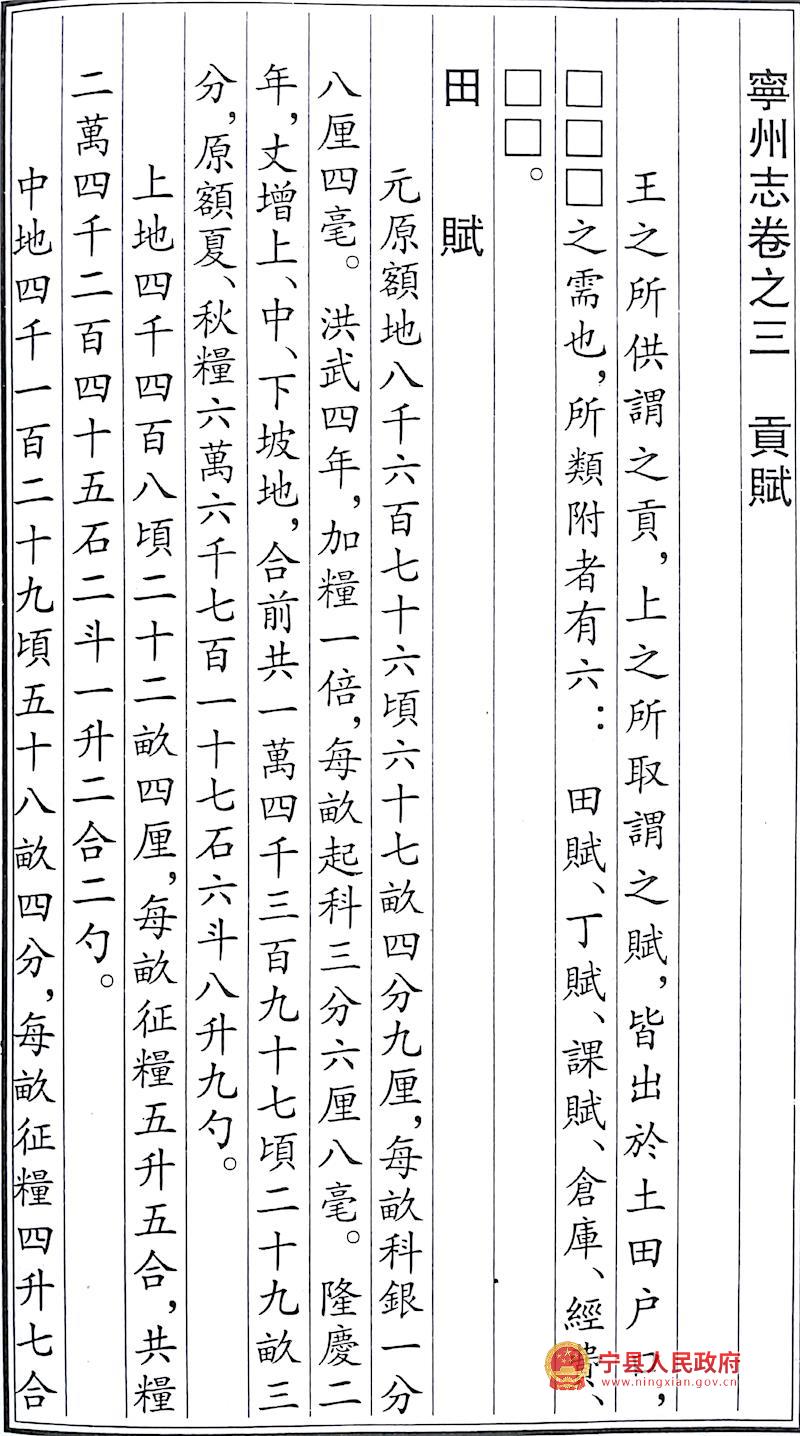 寧州志卷之三　貢賦
王之所供謂之貢，上之所取謂之賦，皆出於土田户口，
□□□之需也，所類附者有六：　田賦、丁賦、課賦、倉庫、經費、
□□。
田　賦
元原額地八千六百七十六頃六十七畝四分九厘，每畝科銀一分
八厘四毫。洪武四年，加糧一倍，每畝起科三分六厘八毫。隆慶二
年，丈增上、中、下坡地，合前共一萬四千三百九十七頃二十九畝三
分，原額夏、秋糧六萬六千七百一十七石六斗八升九勺。
上地四千四百八頃二十二畝四厘，每畝征糧五升五合，共糧
二萬四千二百四十五石二斗一升二合二勺。
中地四千一百二十九頃五十八畝四分，每畝征糧四升七合
宁县人民政府
www.ningxian.gov.cn